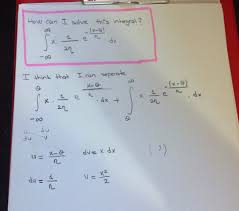 How can I solve this integral?
∞
∫ x . 1/2η e^(-|x-θ|/η) . dx
-∞
I think that I can seperate
θ ∞
∫ x . 1/2η e^(x-θ/η) . dx + ∫ x . 1/2η e^(-(x-θ)/η) . dx
-∞ θ
u = x-θ/η dv = x dx
du = 1/η v = x²/2